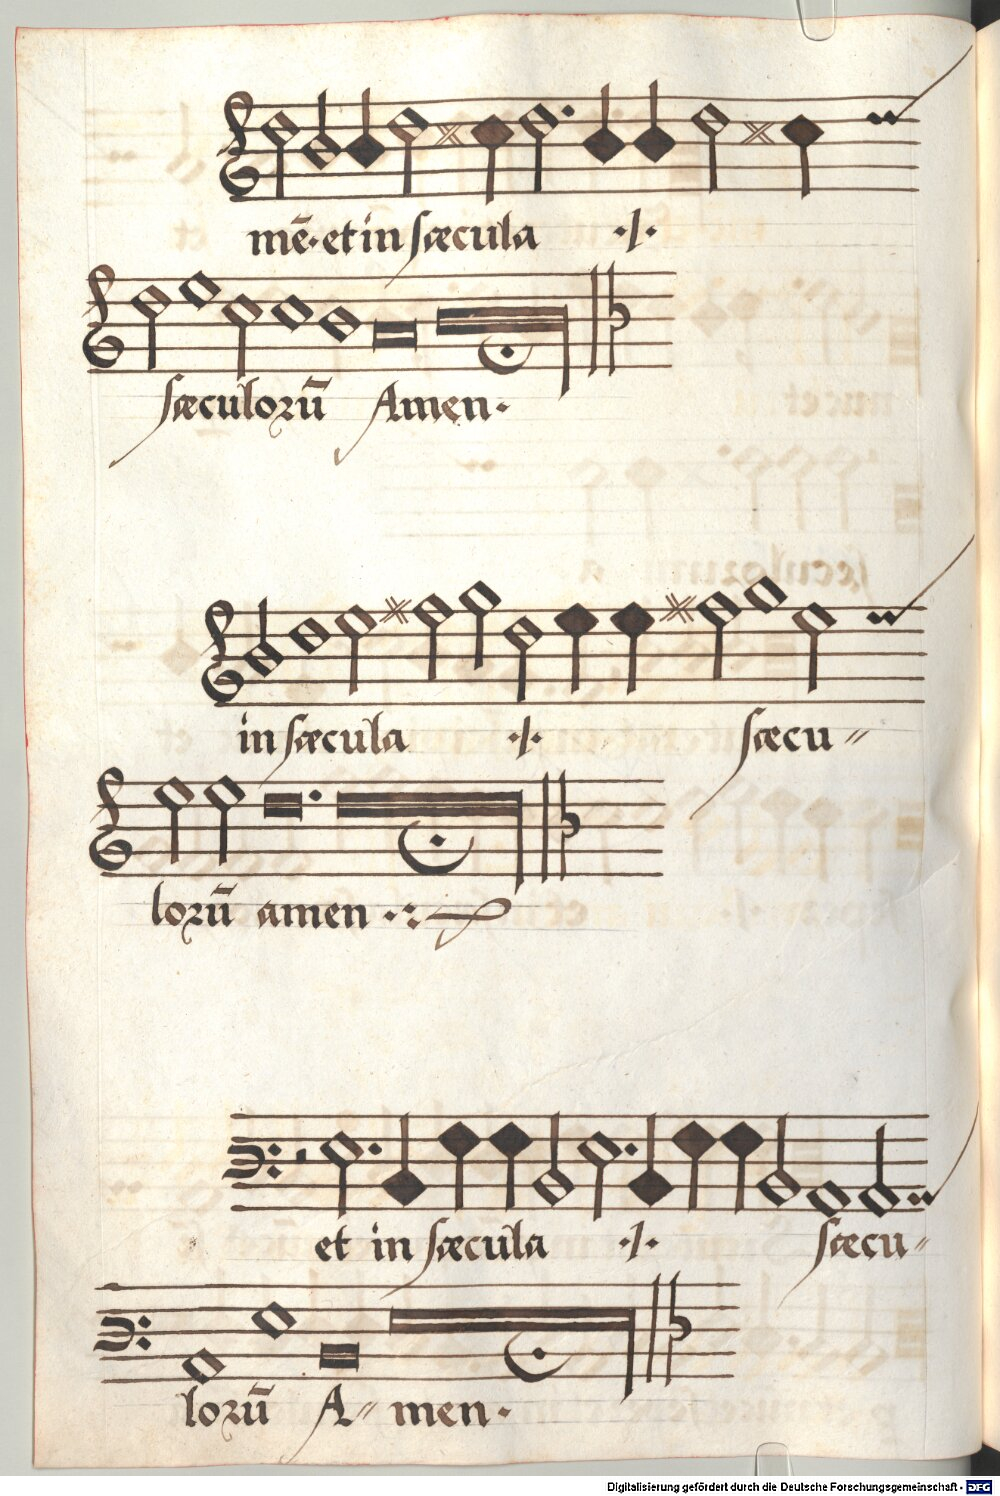 mē· et in sæcula ·/·
sæculorū Amen·
in sæcula ·/· sæcu〃
lorū amen ·:
et in sæcula ·/· sæcu〃
lorū A〃men·
Digitalisierung gefördert durch die Deutsche Forschungsgemeinschaft - DFG